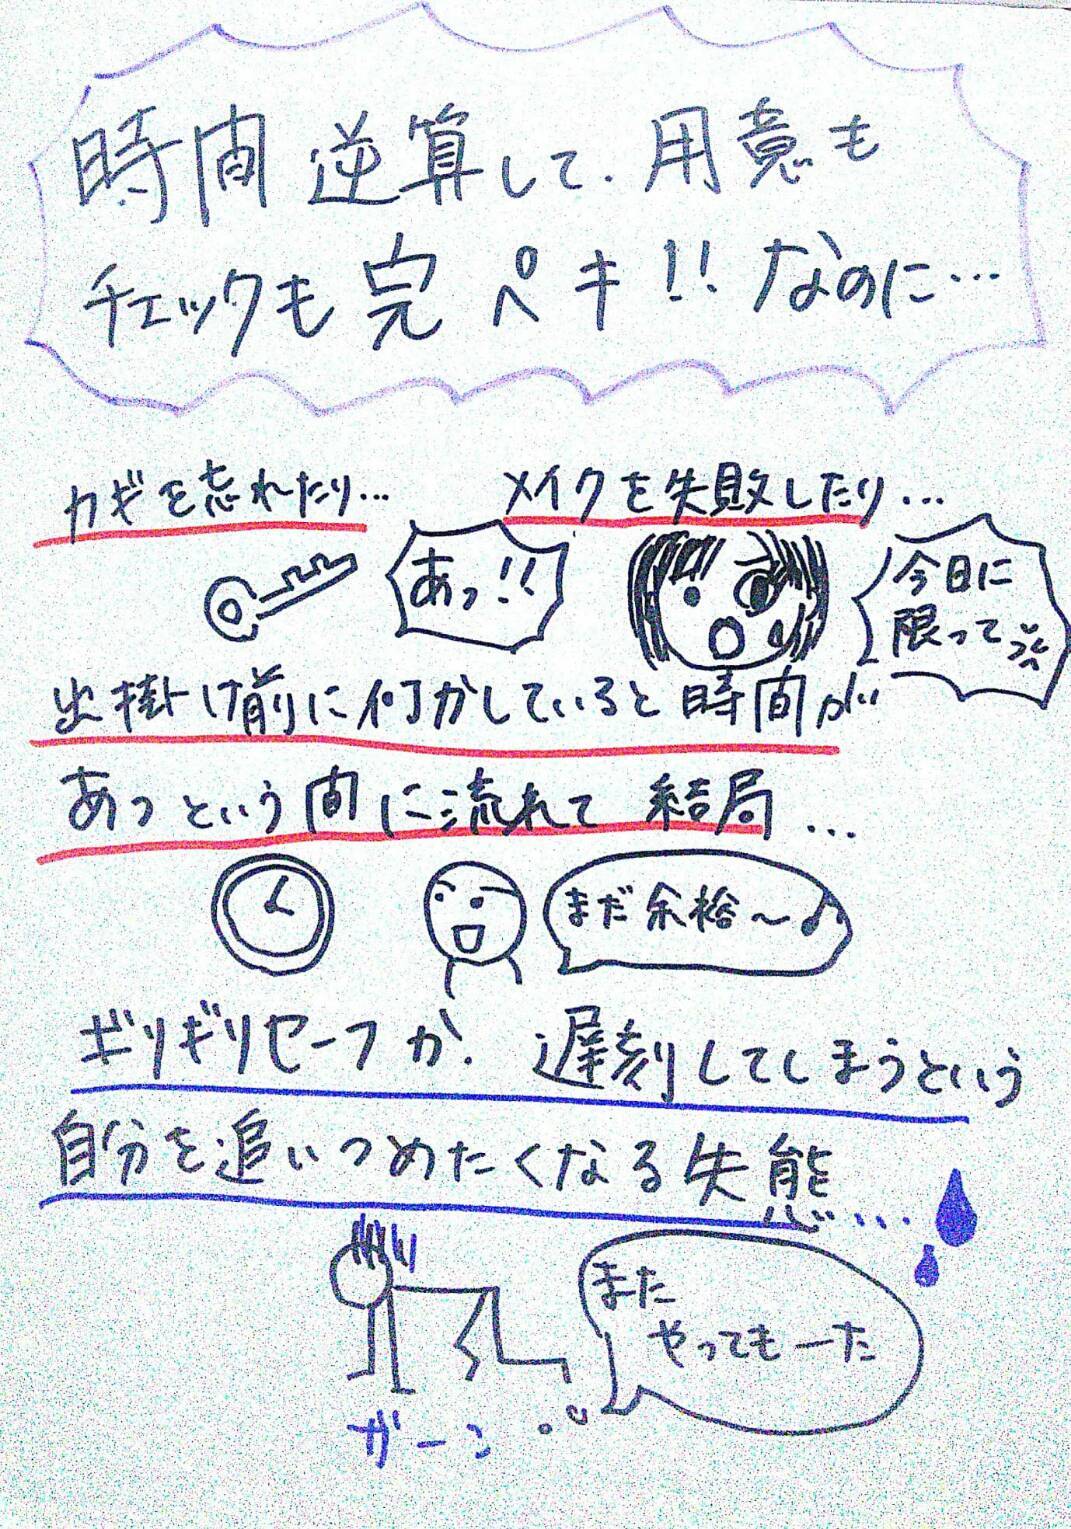 時間逆算して、用意も
チェックも完ペキ!!なのに…
カギを忘れたり…
メイクを失敗したり…
あっ!!
今日に
限って
出掛け前に何かしていると時間が
あっという間に流れて結局…
まだ余裕〜♪
ギリギリセーフか、遅刻してしまうという
自分を追いつめたくなる失態…
また
やってもーた
ガーン